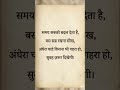 समय सबको बदल देता है,
बस सब्र रखना सीख,
अंधेरा चाहे कितना भी गहरा हो,
सुबह ज़रूर दिखेगी!